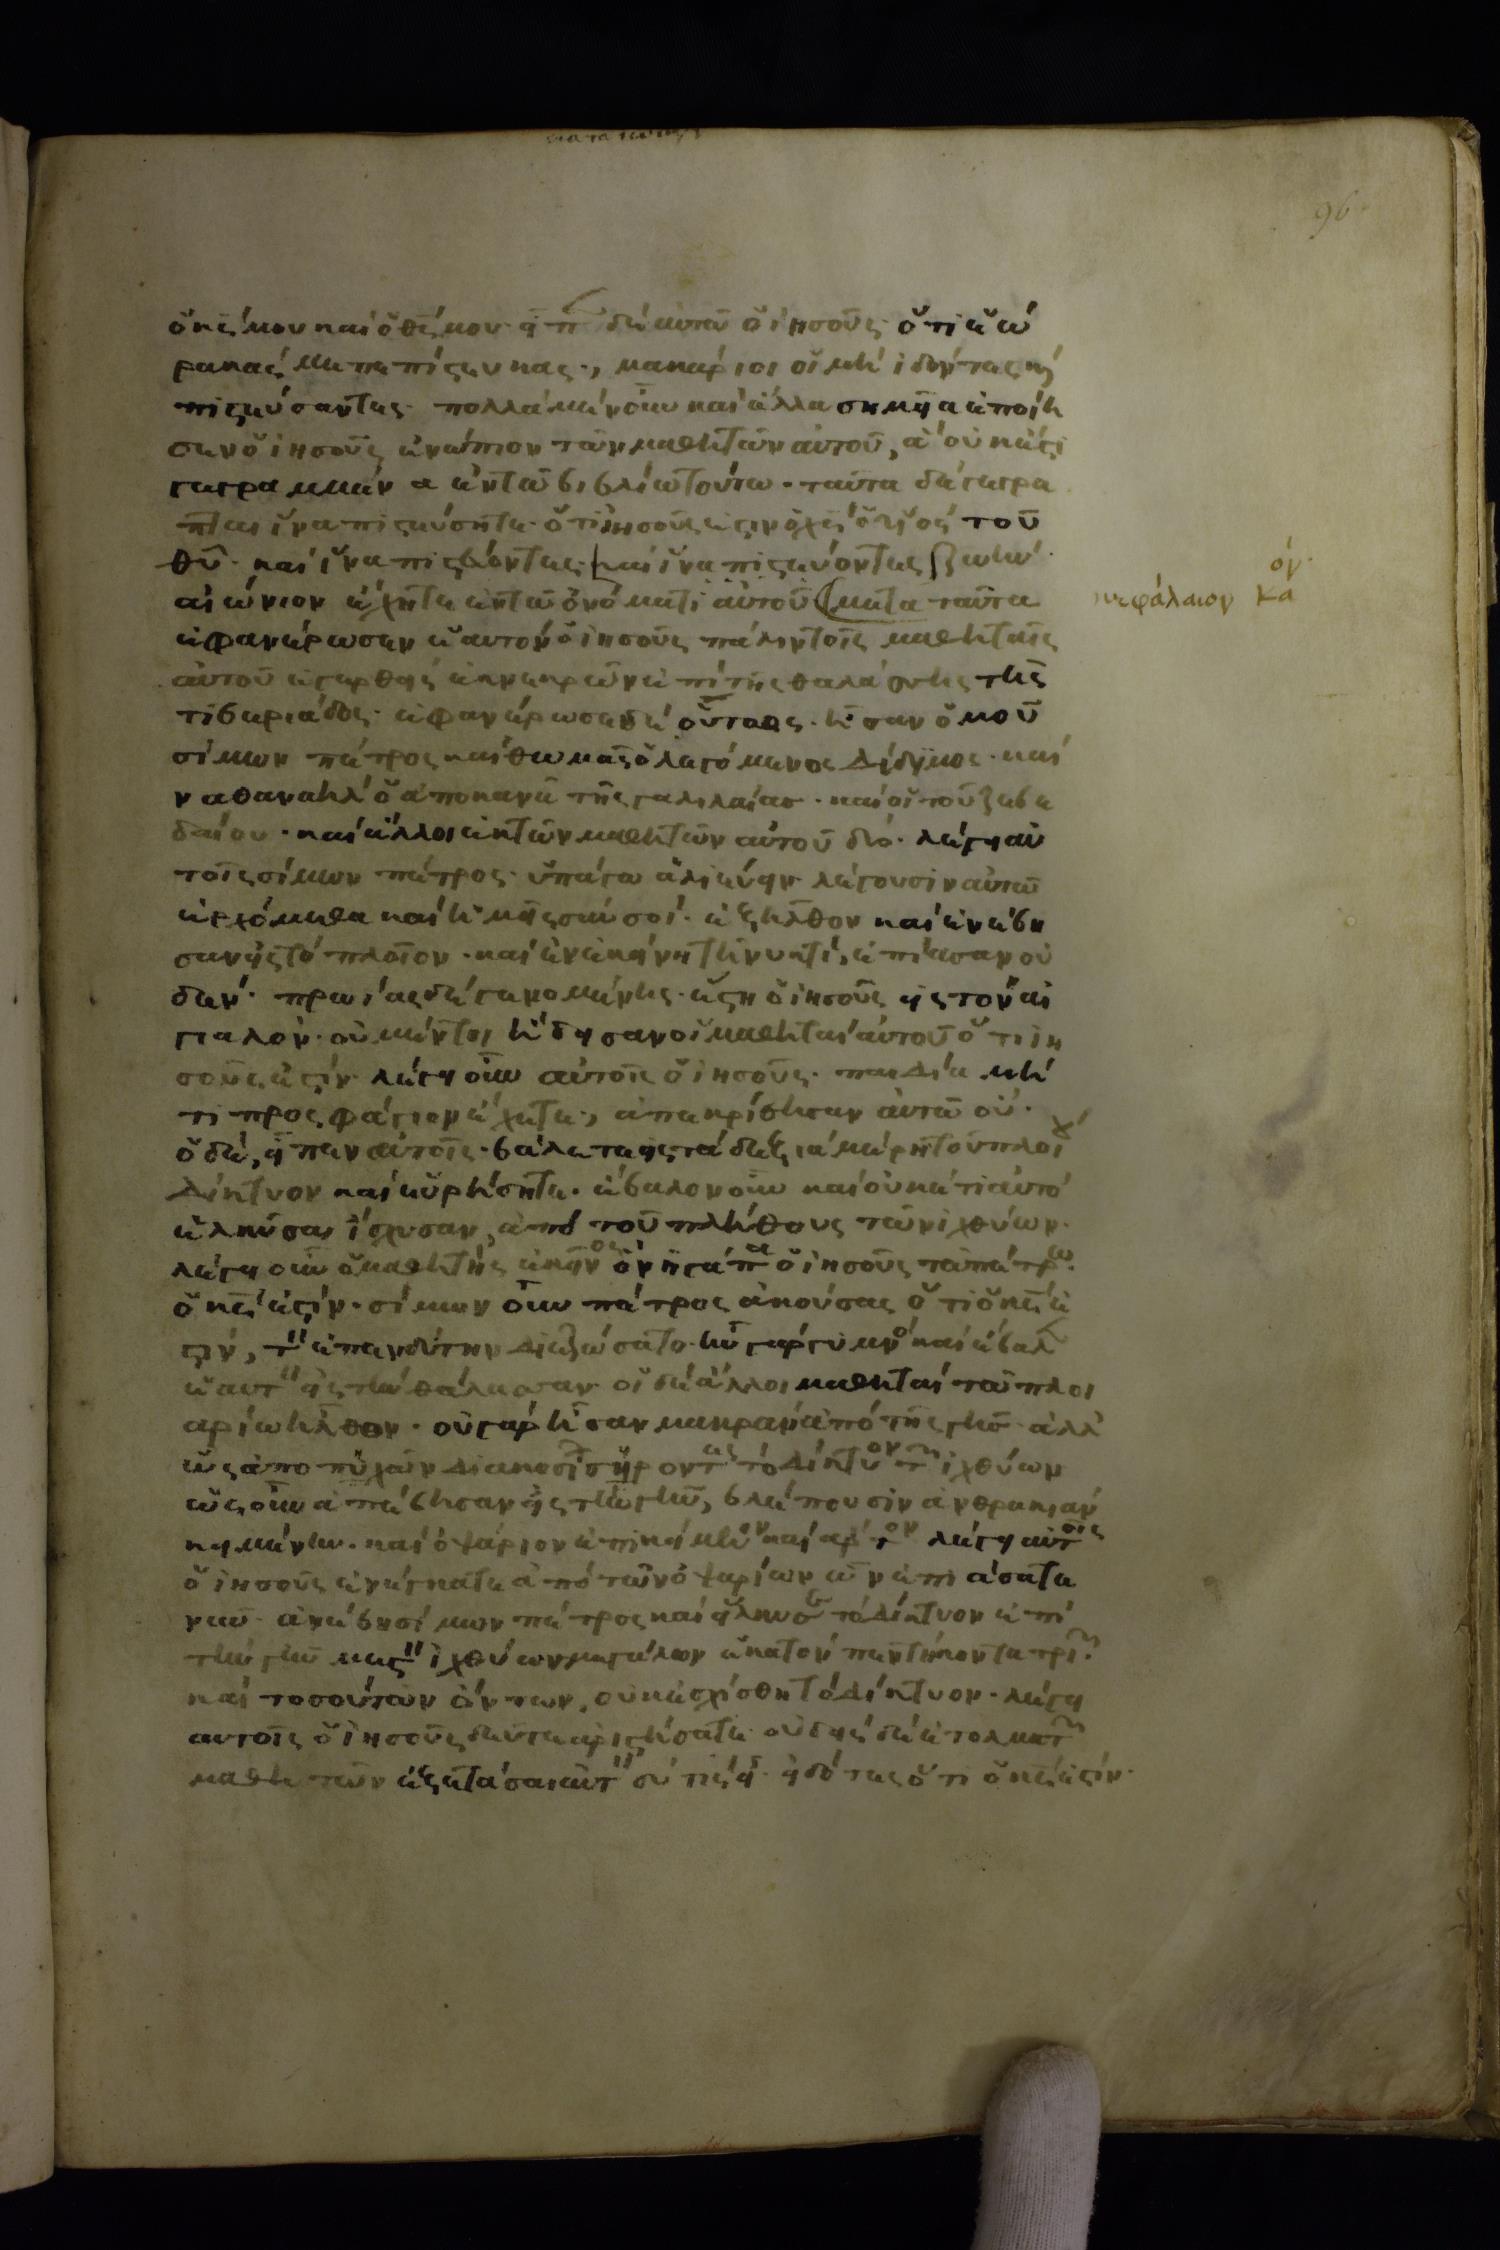 96
ὁ κ̅ς μου καὶ ὁ θ̅ς μου· εἶπ δὲ αὐτῶ ὁ ἰησοῦς· ὅτι ἑώ
ρακάς με πεπίστευκας·, μακάριοι οἱ μὴ ἰδόντες κ
πιστεύσαντες· πολλὰ μὲν οὖν καὶ ἄλλα σημεῖα ἐποίη
σεν ὁ ἰησοῦς ἐνώπιον τῶν μαθητῶν αὐτοῦ, ἃ οὐκ ἔστι
γεγραμμένα ἐν τῶ βιβλίω τούτω· ταῦτα δὲ γέγρα
πται ἵνα πιστεύσητε ὅτι ἰησοῦς ἐστιν ὁ χ̅ς ὁ υἱὸς τοῦ
θ̅υ· καὶ ἵνα πιστεύοντες· καὶ ἵνα πιστεύοντες ζωὴν
αἰώνιον ἔχητε ἐν τῶ ὀνόματι αὐτοῦ μετα ταῦτα
κεφάλαιον κα ον
ἐφανέρωσεν ἑαυτὸν ὁ ἰησοῦς πάλιν τοῖς μαθηταῖς
αὐτοῦ ἐγερθεὶς ἐκ νεκρῶν ἐπὶ τῆς θαλάσσης τῆς
τιβεριάδος· ἐφανέρωσεν δὲ οὕτως· ἦσαν ὁμοῦ
σίμων πέτρος καὶ θωμᾶς ὁ λεγόμενος δίδυμος· καὶ
ναθαναὴλ ὁ ἀπο κανᾶ τῆς γαλιλαίας· καὶ οἱ τοῦ ζεβε
δαίου· καὶ ἄλλοι ἐκ τῶν μαθητῶν αὐτοῦ δύο· λέγει αὐ
τοῖς σίμων πέτρος· ὑπάγω ἁλιεύειν· λέγουσιν αὐτῶ
ἐρχόμεθα καὶ ἡμεῖς σὺν σοί· ἐξῆλθον καὶ ἐνέβη
σαν εἰς τὸ πλοῖον· καὶ ἐν ἐκείνη τῆ νυκτὶ, ἐπίασαν οὐ
δέν· πρωίας δὲ γενομένης· ἔστη ὁ ἰησοῦς εἰς τὸν αἰ
γιαλόν· οὐ μέντοι ἤδεισαν οἱ μαθηταὶ αὐτοῦ ὅτι ἰη
σοῦς ἐστίν· λέγει οὖν αὐτοῖς ὁ ἰησοῦς· παιδία μή
τι προσφάγιον ἔχετε·, ἀπεκρίθησαν αὐτῶ οὔ·
ὁ δὲ, εἶπεν αὐτοῖς· βάλετε εἰς τὰ δεξιὰ μέρη τοῦ πλοί
δίκτυον καὶ εὑρήσητε· ἔβαλον οὖν καὶ οὐκέτι αὐτὸ
ἑλκύσαι ἴσχυσαν, ἀπὸ τοῦ πλήθους τῶν ἰχθύων·
λέγει οὖν ὁ μαθητὴς ἐκεῖνος ὃν ἠγάπα ὁ ἰησοῦς τῶ πέτρω·
ὁ κ̅ς ἐστίν· σίμων οὖν πέτρος ἀκούσας ὅτι ὁ κ̅ς ἐ
στιν, τ ἐπενδύτην διεζώσατο· ἦν γὰρ γυμνὸ καὶ ἔβαλ
ἑαυτ εἰς τὴν θάλασσαν· οἱ δὲ ἄλλοι μαθηταὶ τῶ πλοι
αρίω ἦλθον· οὐ γὰρ ἦσαν μακρὰν ἀπὸ τῆς γῆς· ἀλλ
ὡς ἀπο πηχῶν διακοσί σύροντες τὸ δίκτυον τ ἰχθύων
ὡς οὖν ἀπέβησαν εἰς τὴν γῆν, βλέπουσιν ἀνθρακιὰν
κειμένην· καὶ ὀψάριον ἐπικείμενον καὶ ἄρτον λέγει αὐτοῖς
ὁ ἰησοῦς ἐνέγκατε ἀπὸ τῶν ὀψαρίων ὧν ἐπιάσατε
νῦν· ἀνέβη σίμων πέτρος καὶ εἵλκυσε τὸ δίκτυον ἐπὶ
τὴν γῆν μεστ ἰχθύων μεγάλων ἑκατὸν πεντήκοντα τρι
καὶ τοσούτων ὄντων, οὐκ ἐσχίσθη τὸ δίκτυον· λέγει
αυτοῖς ὁ ἰησοῦς δεῦτε ἀριστήσατε· οὐδεὶς δὲ ἐτόλμα τ
μαθητῶν ἐξετάσαι αὐτ σὺ τίς εἶ· εἰδότες ὅτι ὁ κ̅ς ἐστίν·